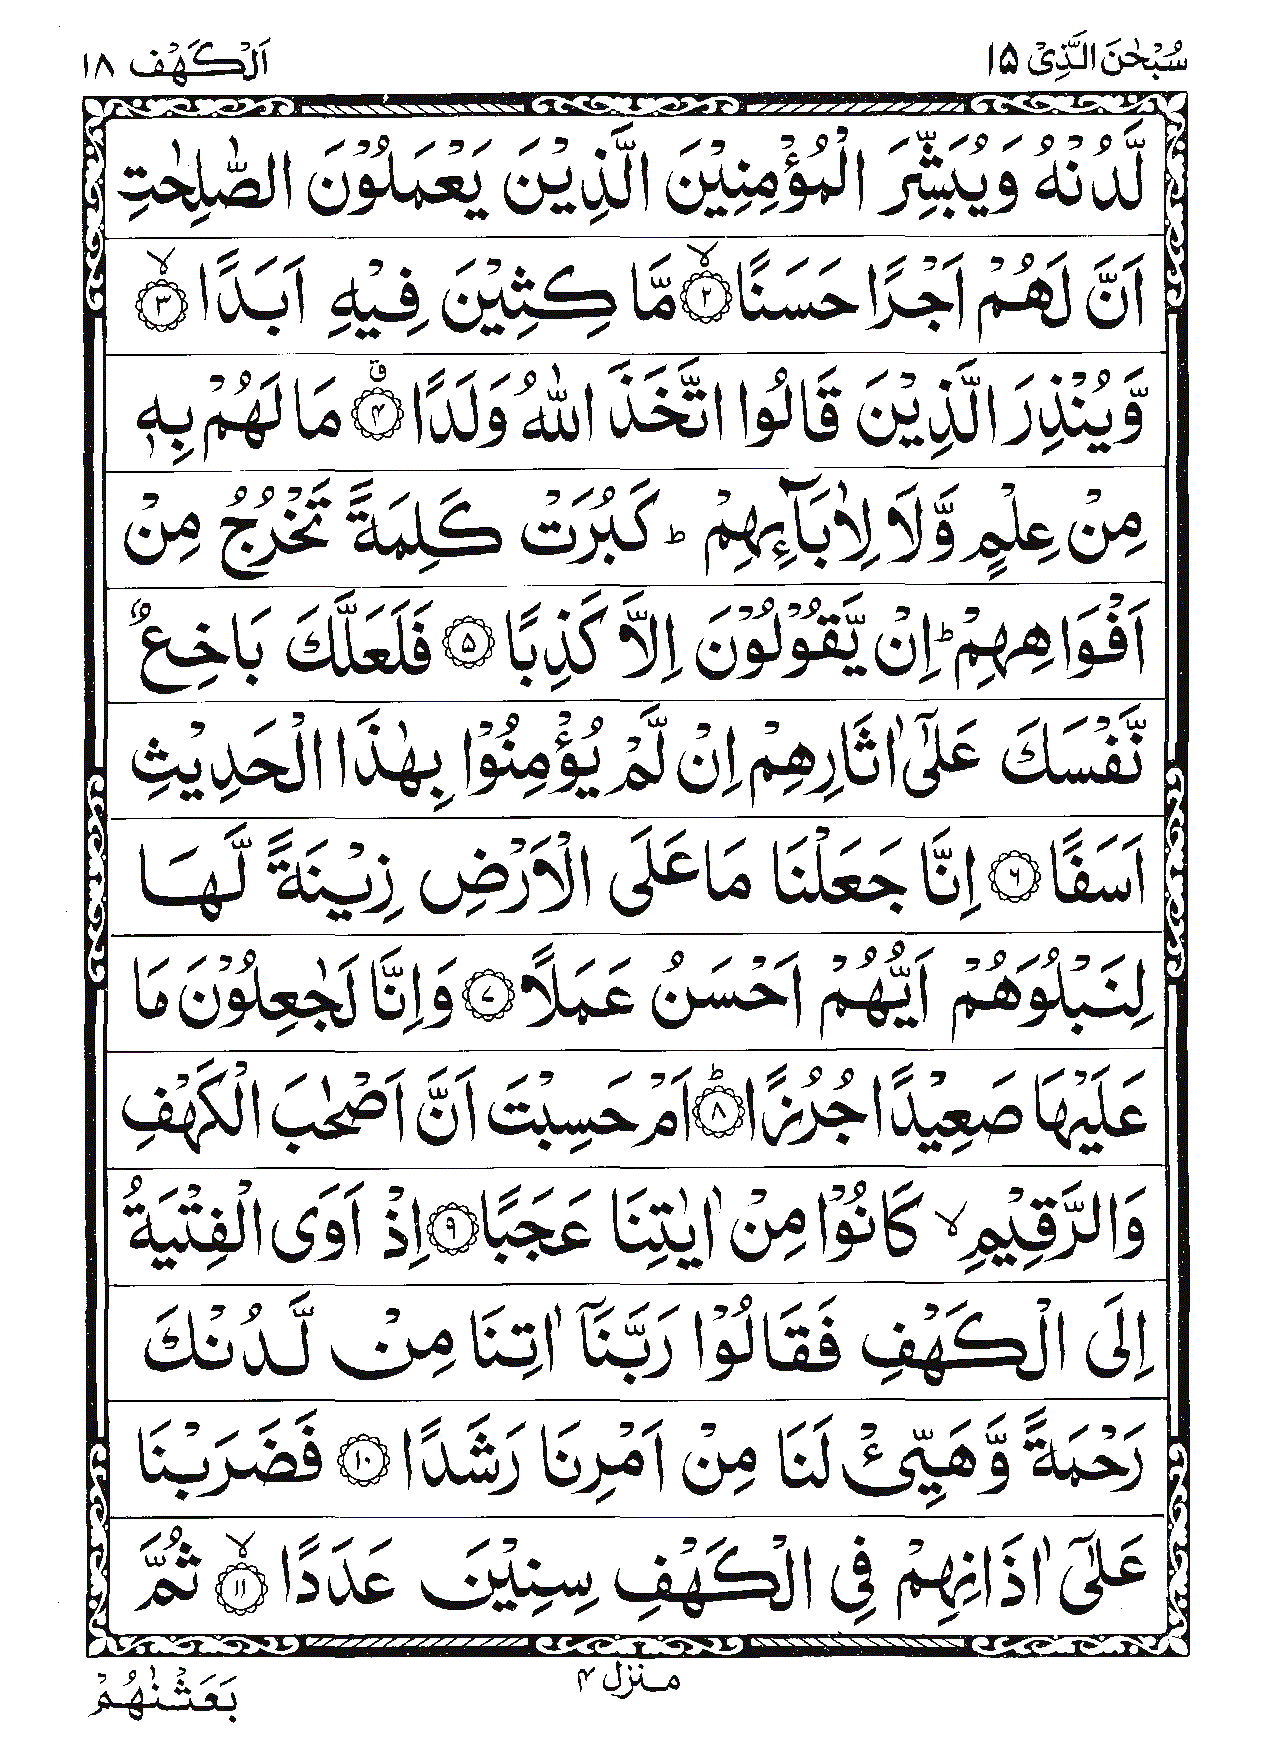 سُبْحٰنَ الَّذِیْ ١٥
اَلْكَهْف ١٨
لَّدُنْهُ وَيُبَشِّرَ الْمُؤْمِنِيْنَ الَّذِيْنَ يَعْمَلُوْنَ الصّٰلِحٰتِ
اَنَّ لَهُمْ اَجْرًا حَسَنًا ۙ﴿٢﴾ مَّا كِثِيْنَ فِيْهِ اَبَدًا ۙ﴿٣﴾
وَّيُنْذِرَ الَّذِيْنَ قَالُوا اتَّخَذَ اللّٰهُ وَلَدًا ﴿٤﴾ ق مَا لَهُمْ بِهٖ
مِنْ عِلْمٍ وَّلَا لِاٰبَآئِهِمْ ؕ كَبُرَتْ كَلِمَةً تَخْرُجُ مِنْ
اَفْوَاهِهِمْ ؕ اِنْ يَّقُوْلُوْنَ اِلَّا كَذِبًا ﴿٥﴾ فَلَعَلَّكَ بَاخِعٌ
نَّفْسَكَ عَلٰٓى اٰثَارِهِمْ اِنْ لَّمْ يُؤْمِنُوْا بِهٰذَا الْحَدِيْثِ
اَسَفًا ﴿٦﴾ اِنَّا جَعَلْنَا مَا عَلَى الْاَرْضِ زِيْنَةً لَّهَا
لِنَبْلُوَهُمْ اَيُّهُمْ اَحْسَنُ عَمَلًا ﴿٧﴾ وَاِنَّا لَجٰعِلُوْنَ مَا
عَلَيْهَا صَعِيْدًا جُرُزًا ؕ﴿٨﴾ اَمْ حَسِبْتَ اَنَّ اَصْحٰبَ الْكَهْفِ
وَالرَّقِيْمِ ۙ كَانُوْا مِنْ اٰيٰتِنَا عَجَبًا ﴿٩﴾ اِذْ اَوَى الْفِتْيَةُ
اِلَى الْكَهْفِ فَقَالُوْا رَبَّنَآ اٰتِنَا مِنْ لَّدُنْكَ
رَحْمَةً وَّهَيِّئْ لَنَا مِنْ اَمْرِنَا رَشَدًا ﴿١٠﴾ فَضَرَبْنَا
عَلٰٓى اٰذَانِهِمْ فِى الْكَهْفِ سِنِيْنَ عَدَدًا ۙ﴿١١﴾ ثُمَّ
منزل ٤
بَعَثْنٰهُمْ